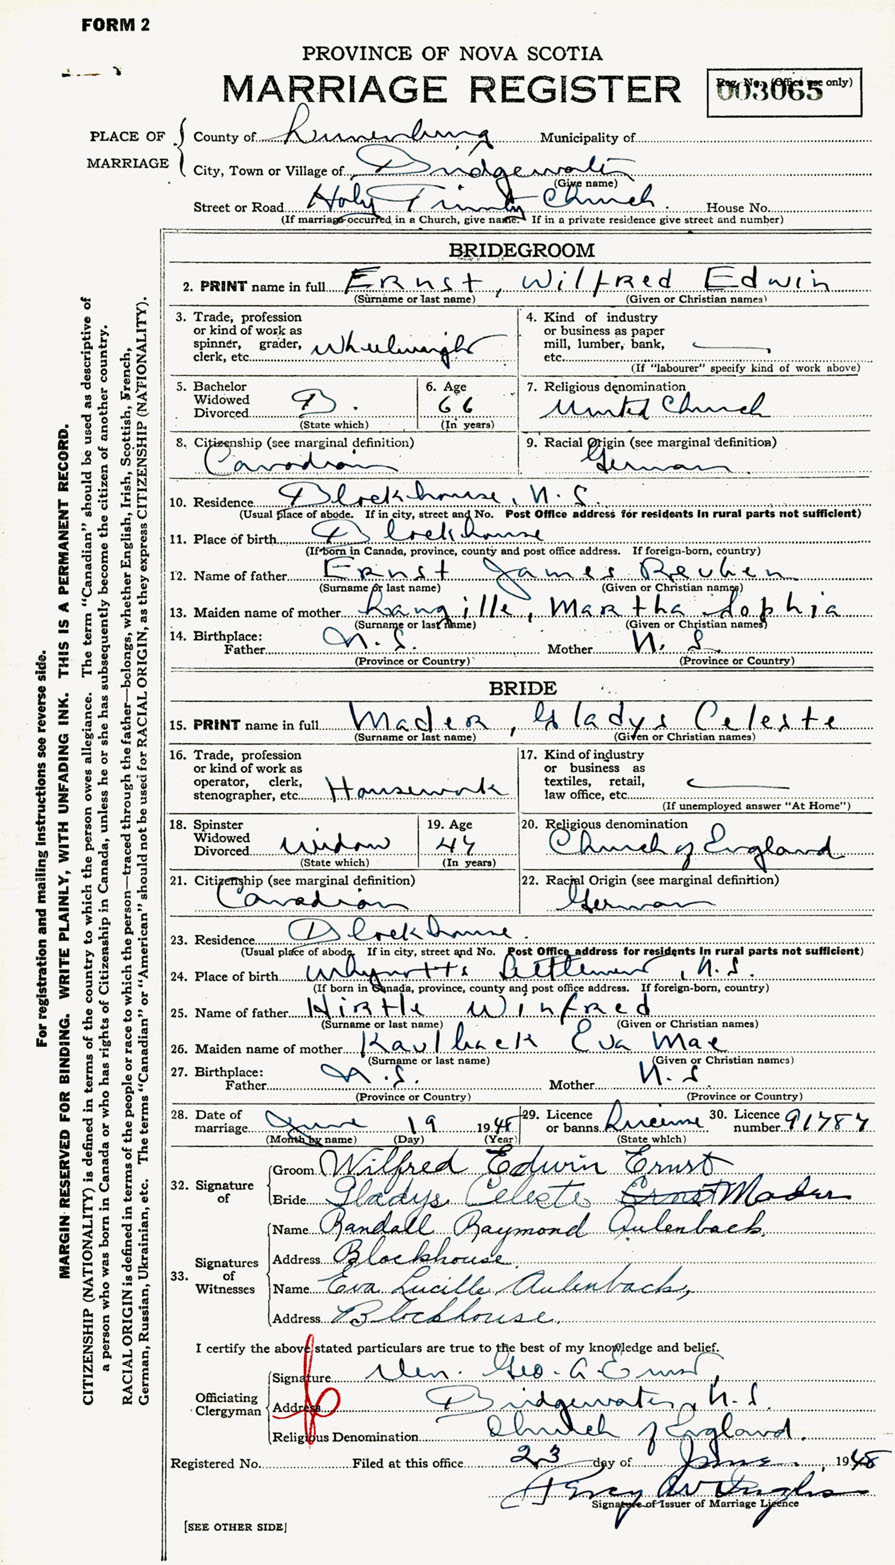 FORM 2
PROVINCE OF NOVA SCOTIA
MARRIAGE REGISTER
Reg. No. (Office use only)
003065
PLACE OF MARRIAGE
County of Lunenburg Municipality of
City, Town or Village of Bridgewater
(Give name)
Street or Road Holy Trinity Church. House No.
(If marriage occurred in a Church, give name. If in a private residence give street and number)
BRIDEGROOM
2. PRINT name in full Ernst, Wilfred Edwin
(Surname or last name) (Given or Christian names)
3. Trade, profession or kind of work as spinner, grader, clerk, etc. Wheelwright
4. Kind of industry or business as paper mill, lumber, bank, etc.
(If "labourer" specify kind of work above)
5. Bachelor Widowed Divorced B.
(State which)
6. Age 66
(In years)
7. Religious denomination United Church
8. Citizenship (see marginal definition) Canadian
9. Racial Origin (see marginal definition) German
10. Residence Blockhouse, N.S.
(Usual place of abode. If in city, street and No. Post Office address for residents in rural parts not sufficient)
11. Place of birth Blockhouse
(If born in Canada, province, county and post office address. If foreign-born, country)
12. Name of father Ernst James Reuben
(Surname or last name) (Given or Christian names)
13. Maiden name of mother Langille, Martha Sophia
(Surname or last name) (Given or Christian names)
14. Birthplace: Father N.S. Mother N.S.
(Province or Country) (Province or Country)
BRIDE
15. PRINT name in full Mader, Gladys Celeste
(Surname or last name) (Given or Christian names)
16. Trade, profession or kind of work as operator, clerk, stenographer, etc. Housework
17. Kind of industry or business as textiles, retail, law office, etc.
(If unemployed answer "At Home")
18. Spinster Widowed Divorced Widow
(State which)
19. Age 44
(In years)
20. Religious denomination Church of England
21. Citizenship (see marginal definition) Canadian
22. Racial Origin (see marginal definition) German
23. Residence Blockhouse.
(Usual place of abode. If in city, street and No. Post Office address for residents in rural parts not sufficient)
24. Place of birth Whynotts Settlement, N.S.
(If born in Canada, province, county and post office address. If foreign-born, country)
25. Name of father Hirtle Winfred
(Surname or last name) (Given or Christian names)
26. Maiden name of mother Kaulback Eva Mae
(Surname or last name) (Given or Christian names)
27. Birthplace: Father N.S. Mother N.S.
(Province or Country) (Province or Country)
28. Date of marriage June 19 1948
(Month by name) (Day) (Year)
29. Licence or banns License
(State which)
30. Licence number 91787
32. Signature of
Groom Wilfred Edwin Ernst
Bride Gladys Celeste Ernst Mader
33. Signatures of Witnesses
Name Randall Raymond Aulenback,
Address Blockhouse.
Name Eva Lucille Aulenback,
Address Blockhouse.
I certify the above stated particulars are true to the best of my knowledge and belief.
Officiating Clergyman
Signature Ven. Geo. A. Ernst,
Address Bridgewater, N.S.
Religious Denomination Church of England.
Registered No. Filed at this office 23 day of June, 1948
Signature of Issuer of Marriage Licence
[SEE OTHER SIDE]
For registration and mailing instructions see reverse side.
MARGIN RESERVED FOR BINDING. WRITE PLAINLY, WITH UNFADING INK. THIS IS A PERMANENT RECORD.
CITIZENSHIP (NATIONALITY) is defined in terms of the country to which the person owes allegiance. The term "Canadian" should be used as descriptive of
a person who was born in Canada or who has rights of Citizenship in Canada, unless he or she has subsequently become the citizen of another country.
RACIAL ORIGIN is defined in terms of the people or race to which the person—traced through the father—belongs, whether English, Irish, Scottish, French,
German, Russian, Ukrainian, etc. The terms "Canadian" or "American" should not be used for RACIAL ORIGIN, as they express CITIZENSHIP (NATIONALITY).